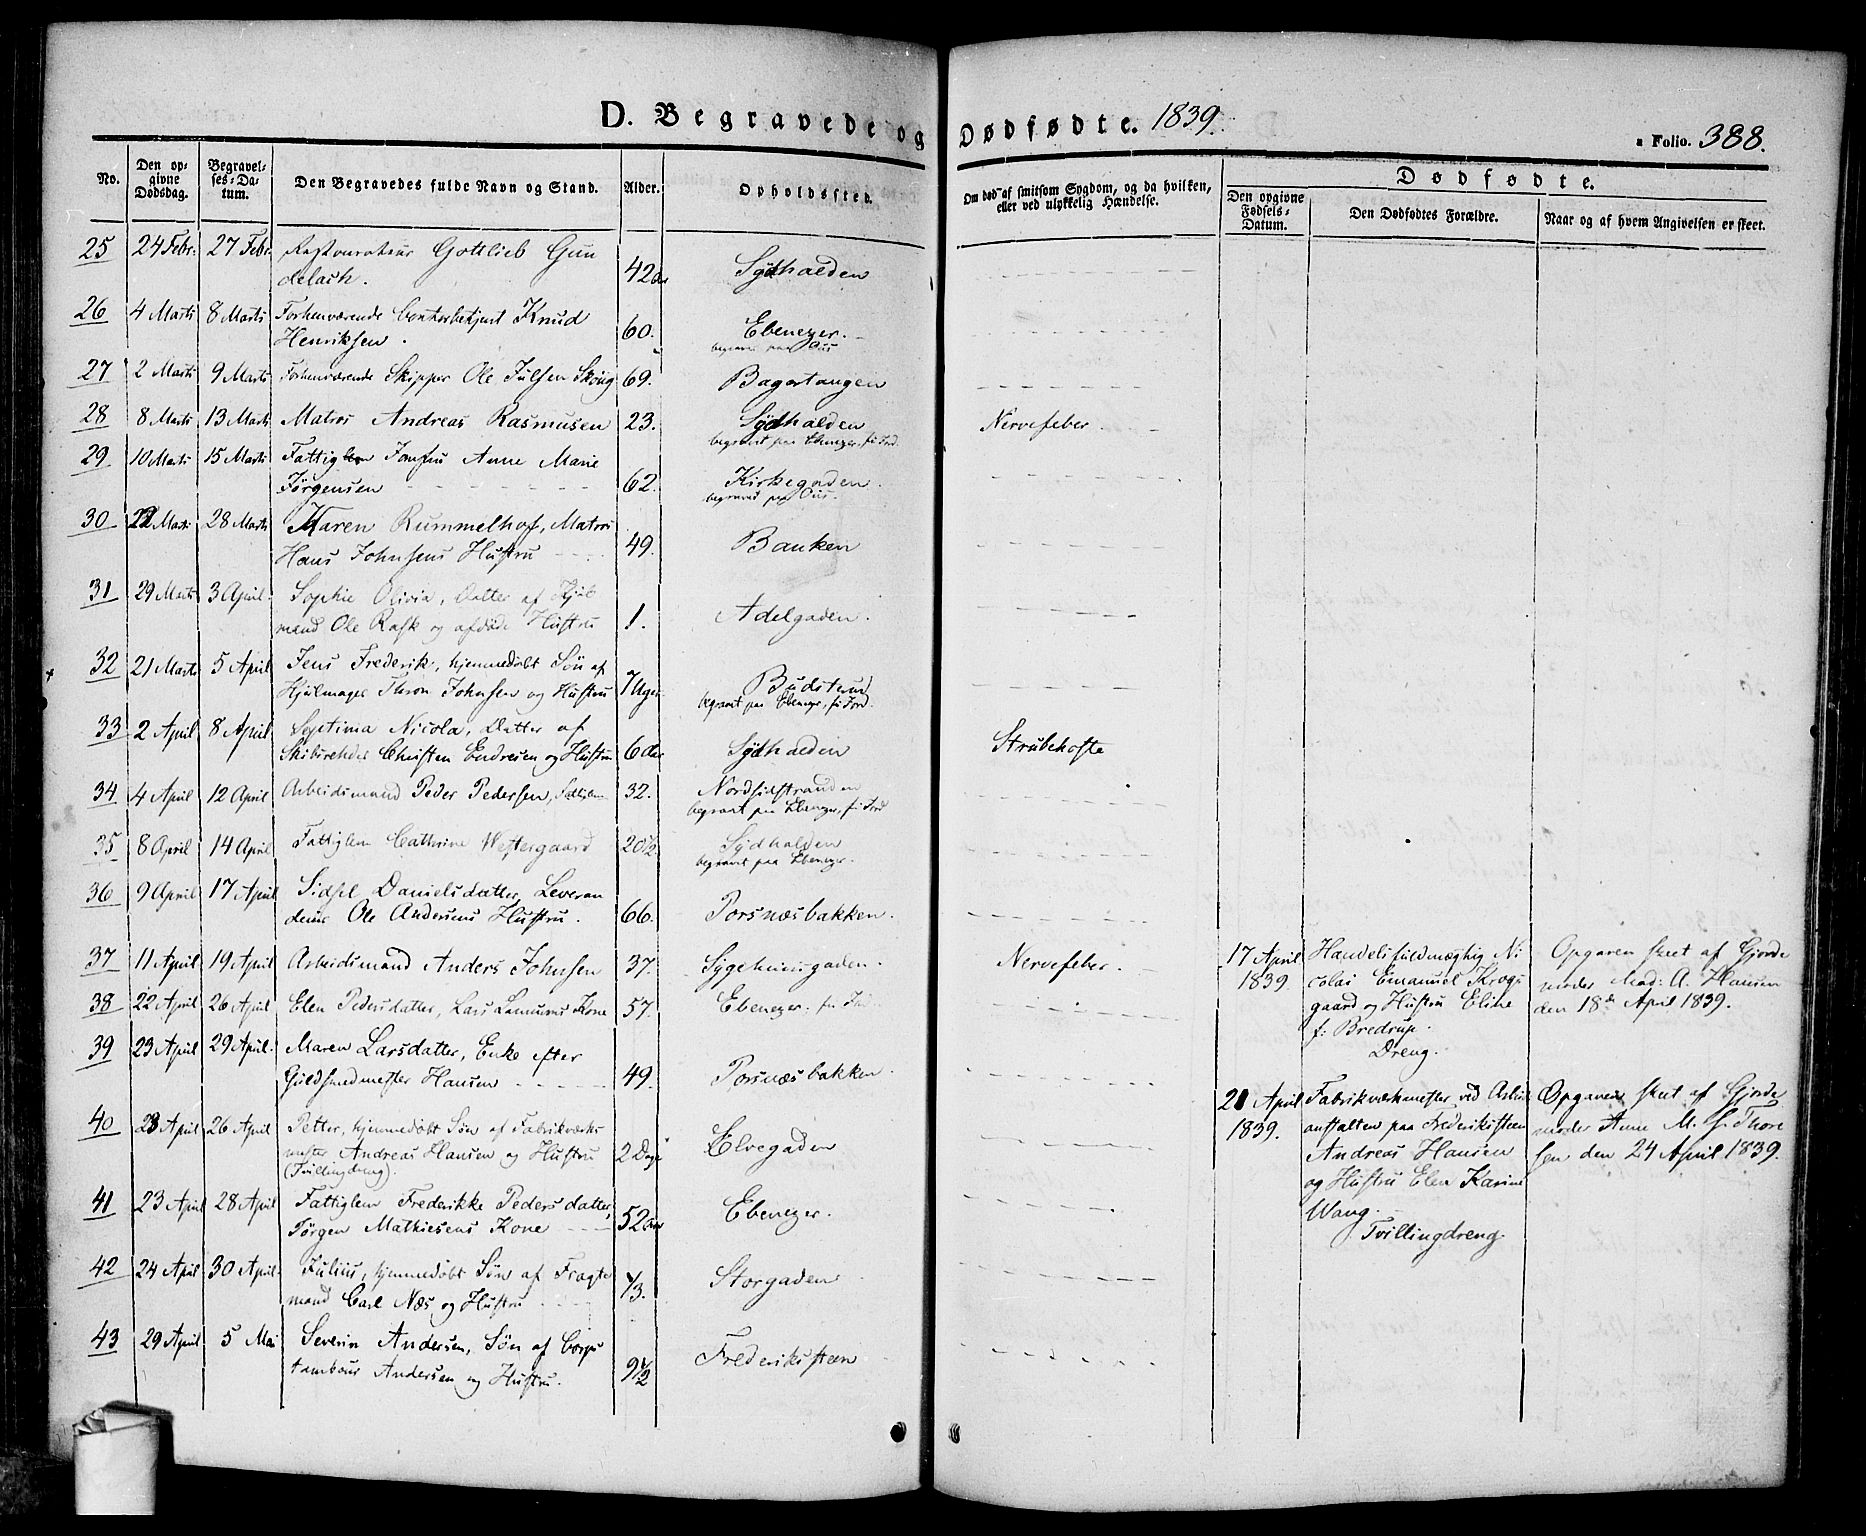 D. Begravede og Dødfødte. 1839.
a Folio. 388.
No.
Den opgivne Dødsdag.
Begravelses-Datum.
Den Begravedes fulde Navn og Stand.
Alder.
Opholdssted.
Om død af smitsom Sygdom, og da hvilken, eller ved ulykkelig Hændelse.
Dødfødte.
Den opgivne Fødsels-Datum.
Den Dødfødtes Forældre.
Naar og af hvem Angivelsen er skeet.
25 24 Febr: 27 Febr. Restaurateur Gottlieb Gun
delach. 42 Aar Sydhalden
26 4 Marts 8 Marts Forhenværende Contorbetjent Knud
Henriksen. 60. Ebenezer.
begravet paa Öus
27 2 Marts 9 Marts Forhenværende Skipper Ole Julsen Skoug 69. Bagertangen
28 8 Marts 13 Marts Matros Andreas Rasmusen 23. Sydhalden Nervefeber.
begravet paa Ebenezer, fri Jord.
29 10 Marts 15 Marts Fattiglem Jomfru Anne Marie
Jørgensen 62. Kirkegaden.
begravet paa Öus.
30 22 Marts 28 Marts Karen Rummelhof, Matros
Hans Johnsens Hustru 49. Banken
31 29 Marts 3 April. Sophie Olivia, Datter af Hjul
mand Ole Rask og afdøde Hustru 1. Adelgaden.
32 21 Marts 5 April Jens Frederik, hjemmedöbt Sön af
Hjulmager Thron Johnsen og Hustru 7 Uger Budsterud
begravet paa Ebenezer, fri Jord.
33 2 April 8 April Septima Nicola, Datter af
Skibsreder Christen Endresen og Hustru 6 Aar Sydhalden Strubehoste
34 4 April 12 April Arbeidsmand Peder Pedersen, Fattiglem 32. Nordsidstranden
begravet paa Ebenezer, fri Jord
35 8 April 14 April Fattiglem Cathrine Westergaard 20 1/2. Sydhalden
begravet paa Ebenezer.
36 9 April 17 April Sidsel Danielsdatter, Leveran
deur Ole Andersens Hustru. 66. Porsnæsbakken.
37 11 April 19 April Arbeidsmand Anders Johnsen 37. Sygehuusgaden. Nervefeber.
38 22 April 26 April Elen Pedersdatter, Lars Kone 57. Ebenezer. fri Jord.
39 23 April 29 April. Maren Larsdatter, Enke efter
Guldsmedmester Hansen 49. Porsnæsbakken.
40 23 April 26 April Petter, hjemmedöbt Sön af Fabrikværk
mester Andreas Hansen og Hustru 2 Dage Elvegaden
(Tvillingdreng).
41 23 April 28 April Fattiglem Frederikke Pedersdatter,
Jørgen Mathiesens Kone 52 Aar Ebenezer.
42 24 April 30 April Julius, hjemmedöbt Sön af Fragte
mand Carl Næs og Hustru 1/3. Storgaden
43 29 April 5 Mai Severin Andersen, Sön af Corps
tambour Andersen og Hustru. 9 1/2 Frederiksteen
17 April
1839.
Handelsfuldmægtig Ni
colai Emanuel Krogs
gaard og Hustru Elise
f: Bredrup.
Dreng.
Opgaven skeet af Gjorde
moder Mad: A. Hansen
den 18de April 1839.
21 April
1839.
Fabrikværkmester ved Arbeids
anstalten paa Frederiksteen
Andreas Hansen
og Hustru Elen Karine
Wang.
Tvillingdreng.
Opgaven skeet af Gjorde
moder Anne M. G. Thore
sen den 24 April 1839.